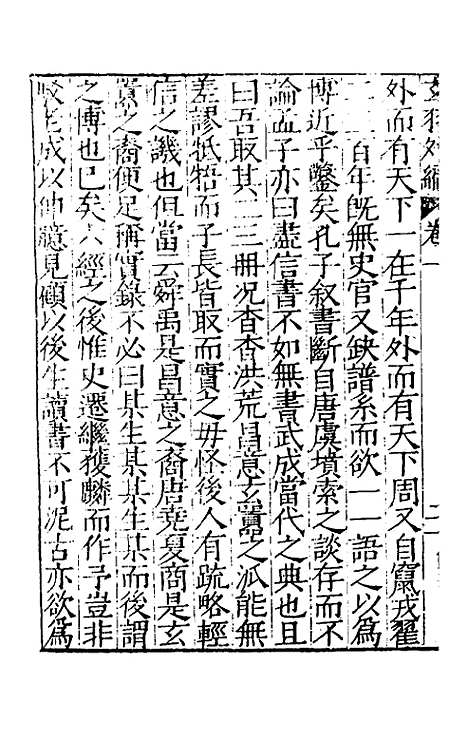 外編 卷一
外而有天下一在千年外而有天下周又自竄戎翟
百年既無史官又缺譜系而欲一一語之以爲
博近乎鑿矣孔子叙書斷自唐虞墳索之談存而不
論孟子亦曰盡信書不如無書武成當代之典也且
曰吾取其二三冊况杳杳洪荒昌意玄囂之派能無
差謬牴牾而子長皆取而實之毋怪後人有疏略輕
信之譏也但當云舜禹是昌意之裔唐堯夏商是玄
囂之裔便足稱實錄不必曰某生某某生某而後謂
之博也已矣六經之後惟史遷繼獲麟而作予豈非
老成以伸意見顧以後生讀書不可泥古亦欲爲